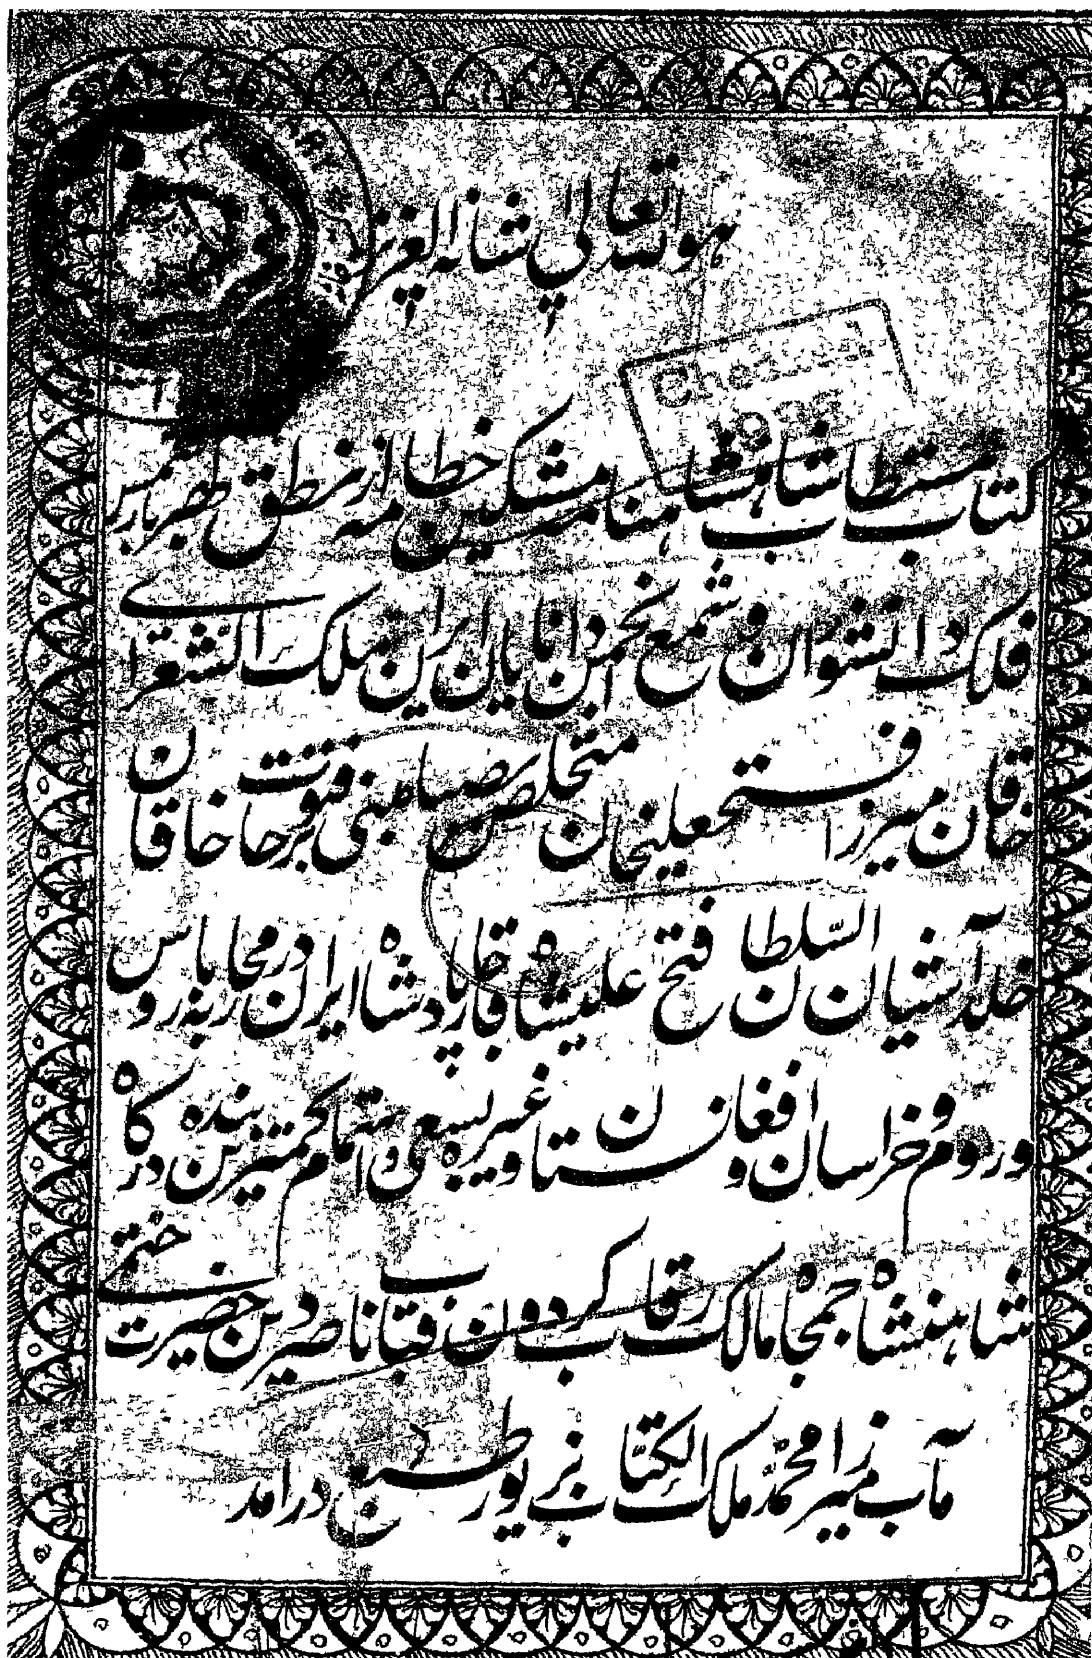 هو الله تعالی شانه العزیز
Checked
کتاب مستطاب شاهنشاه نامه مشکین ختامه از منطق طهر بار شمس
فلک دانشوران و شمع انجمن دانایان ایران ملک الشعرای
خاقان میرزا فتحعلیخان متخلص بصبا مبنی بر فتوحات خاقان
خلد آشیان السلطان فتح علیشاه قاجار پادشاه ایران در محاربه با روس
و روم و خراسان و افغانستان و غیره بسعی و اهتمام کمترین بنده درگاه
شاهنشاه جمجاه مالک رقاب گردون قباب ناصر دین حضرت ختمی
مآب میرزا محمد ملک الکتاب بزیور طبع در آمد